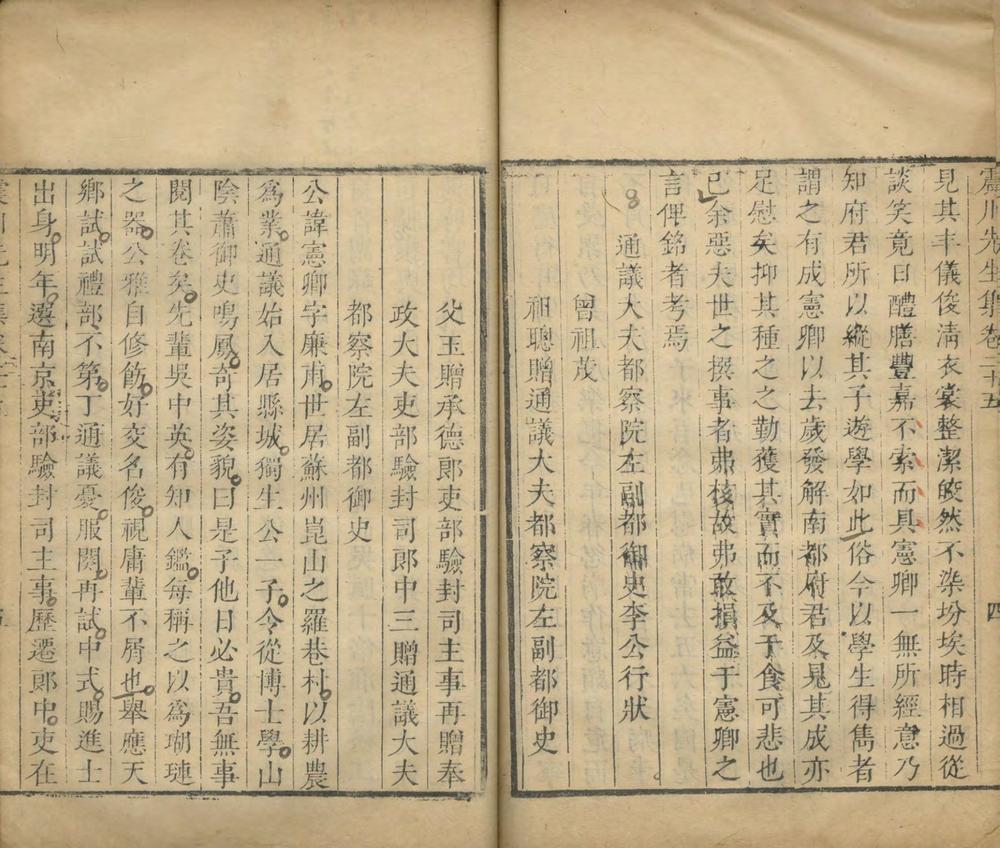 震川先生集卷二十五
四
見其丰儀俊淸衣裳整潔皎然不染坋埃時相過從
談笑竟日醴膳豐嘉不索而具憲卿一無所經意乃
知府君所以縱其子遊學如此俗今以學生得雋者
謂之有成憲卿以去歲發解南都府君及見其成亦
足慰矣抑其種之之勤獲其實而不及于食可悲也
已余惡夫世之撰事者弗核故弗敢損益于憲卿之
言俾銘者考焉
通議大夫都察院左副都御史李公行狀
曾祖茂
祖聰贈通議大夫都察院左副都御史
父玉贈承德郎吏部驗封司主事再贈奉
政大夫吏部驗封司郎中三贈通議大夫
都察院左副都御史
公諱憲卿字廉甫世居蘇州崑山之羅巷村以耕農
爲業通議始入居縣城獨生公一子令從博士學山
陰蕭御史鳴鳳奇其姿貌曰是子他日必貴吾無事
閱其卷矣先輩吳中英有知人鑑每稱之以爲瑚璉
之器公雅自修飭好交名俊視庸輩不屑也舉應天
鄉試試禮部不第丁通議憂服闋再試中式賜進士
出身明年選南京吏部驗封司主事歷遷郎中吏在